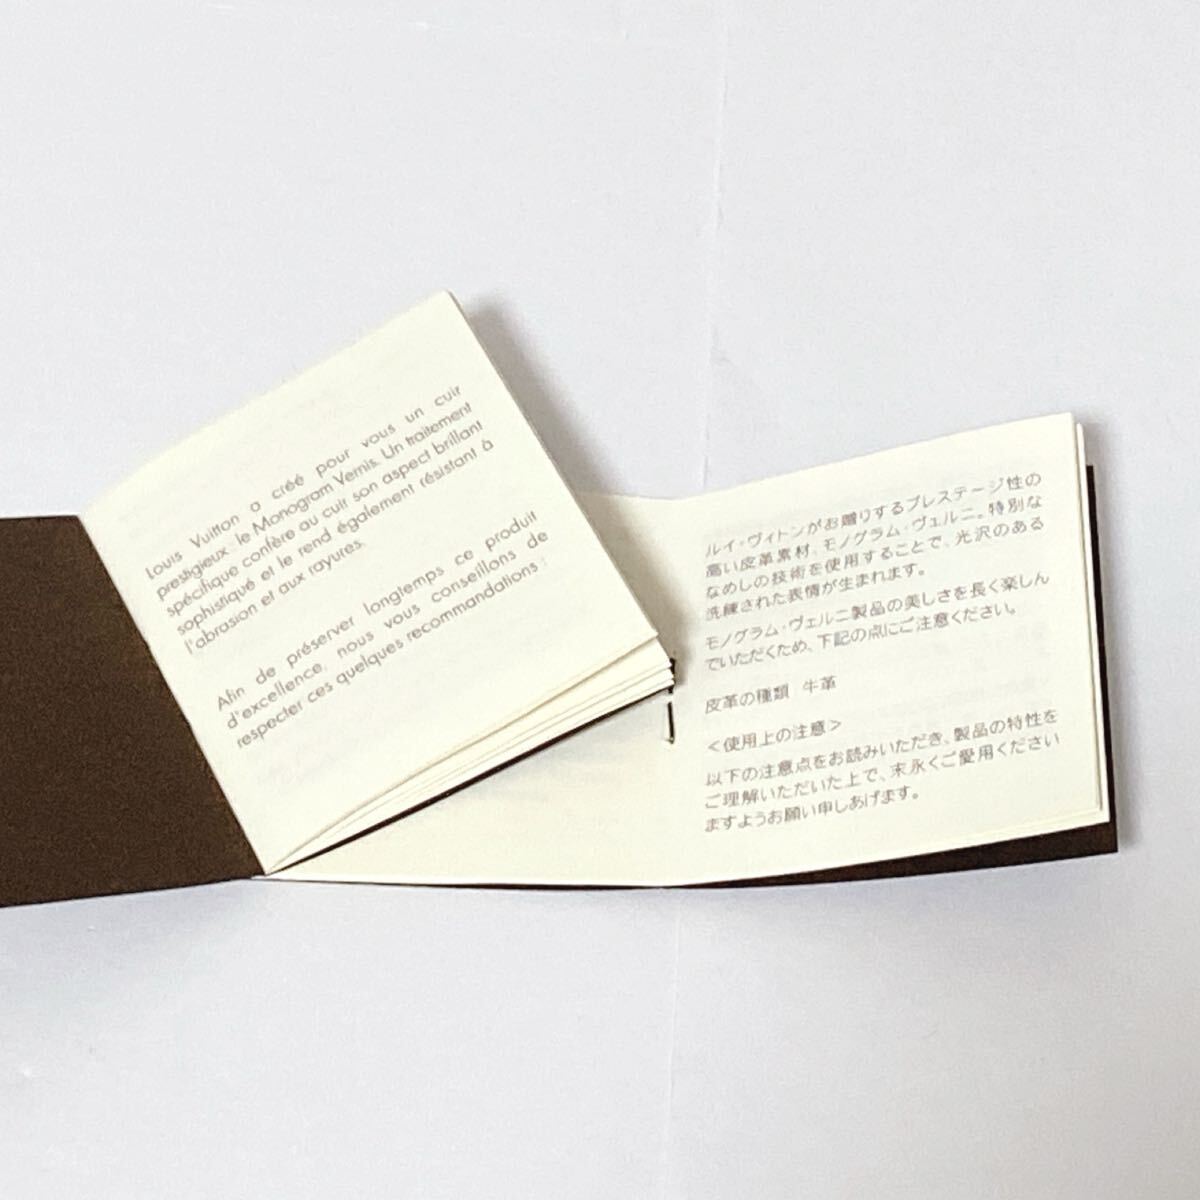 Louis Vuitton a créé pour vous un cuir
prestigieux : le Monogram Vernis. Un traitement
spécifique confère au cuir son aspect brillant
sophistiqué et le rend également résistant à
l'abrasion et aux rayures.
Afin de préserver longtemps ce produit
d'excellence, nous vous conseillons de
respecter ces quelques recommandations :
ルイ・ヴィトンがお贈りするプレステージ性の
高い皮革素材、モノグラム・ヴェルニ。特別な
なめしの技術を使用することで、光沢のある
洗練された表情が生まれます。
モノグラム・ヴェルニ製品の美しさを長く楽しん
でいただくため、下記の点にご注意ください。
皮革の種類 牛革
＜使用上の注意＞
以下の注意点をお読みいただき、製品の特性を
ご理解いただいた上で、末永くご愛用ください
ますようお願い申しあげます。